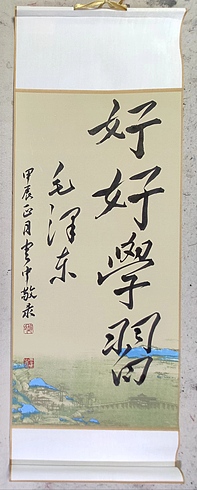 好好學習
毛澤东
甲辰正月雲中敬录